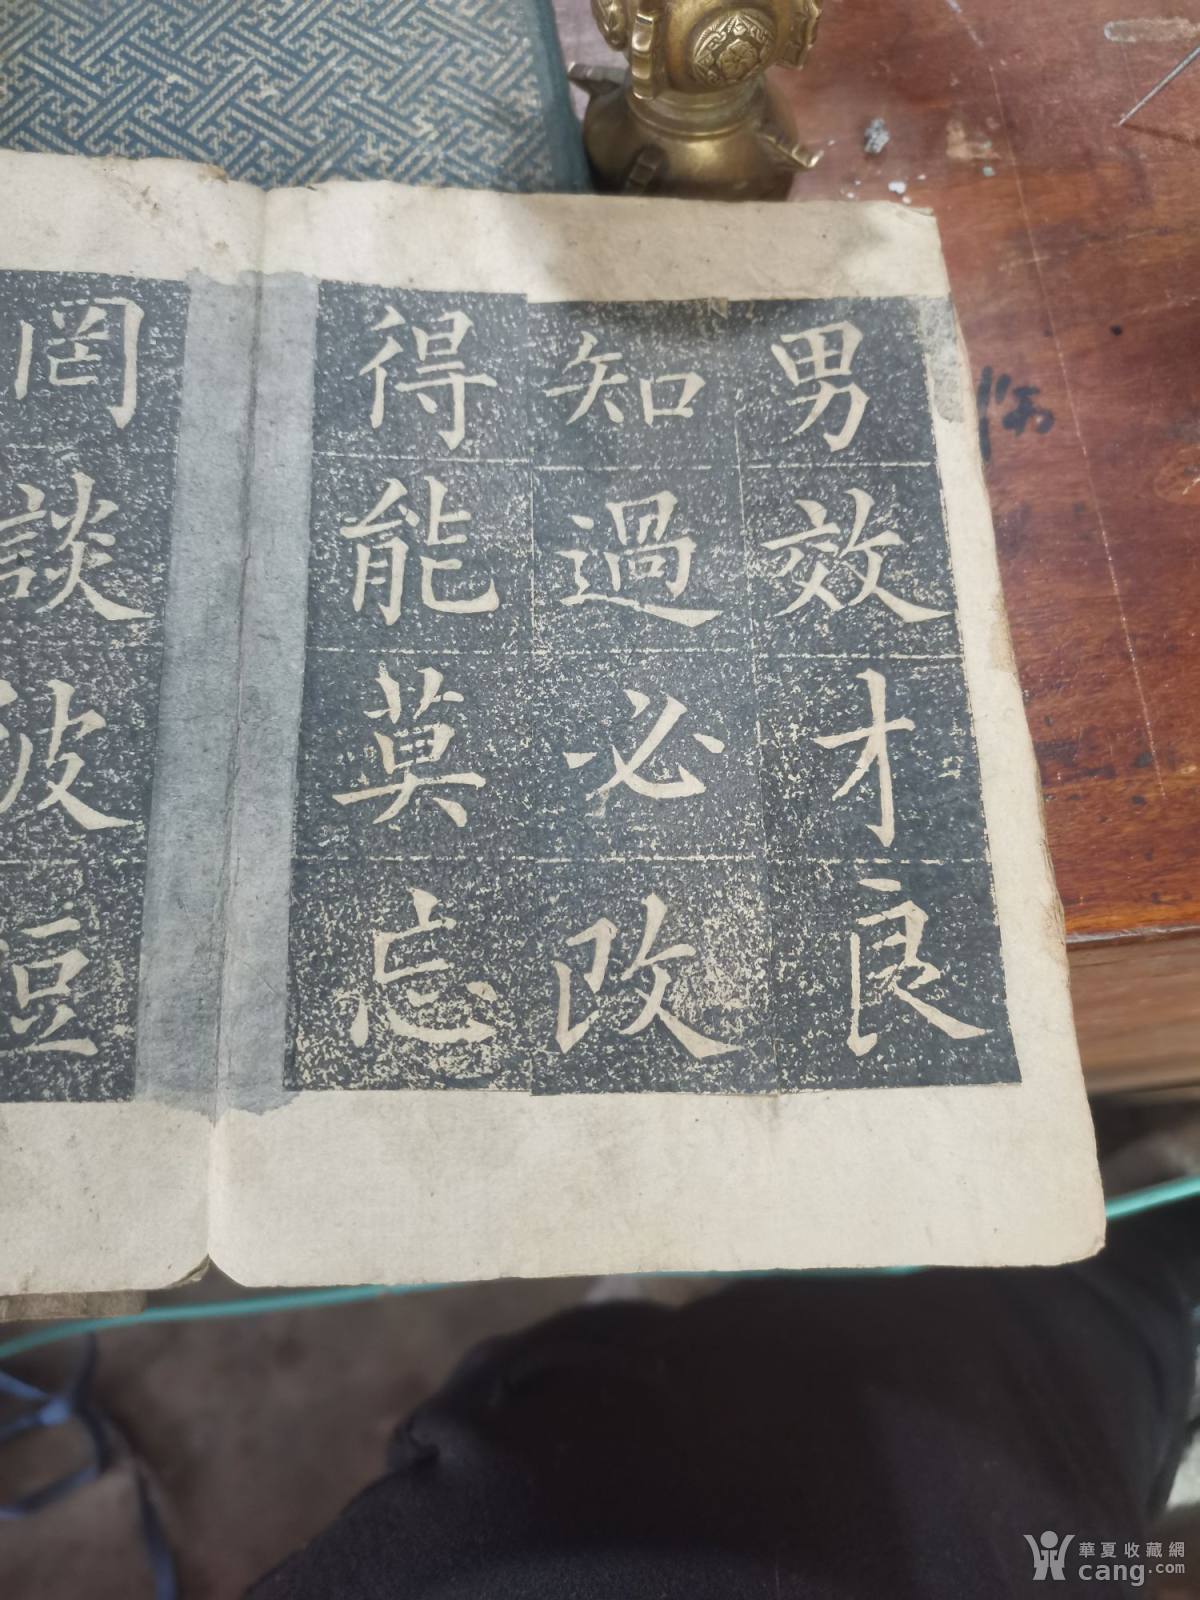 男效才良
知過必改
得能莫忘
罔談彼短
華夏收藏網
cang.com